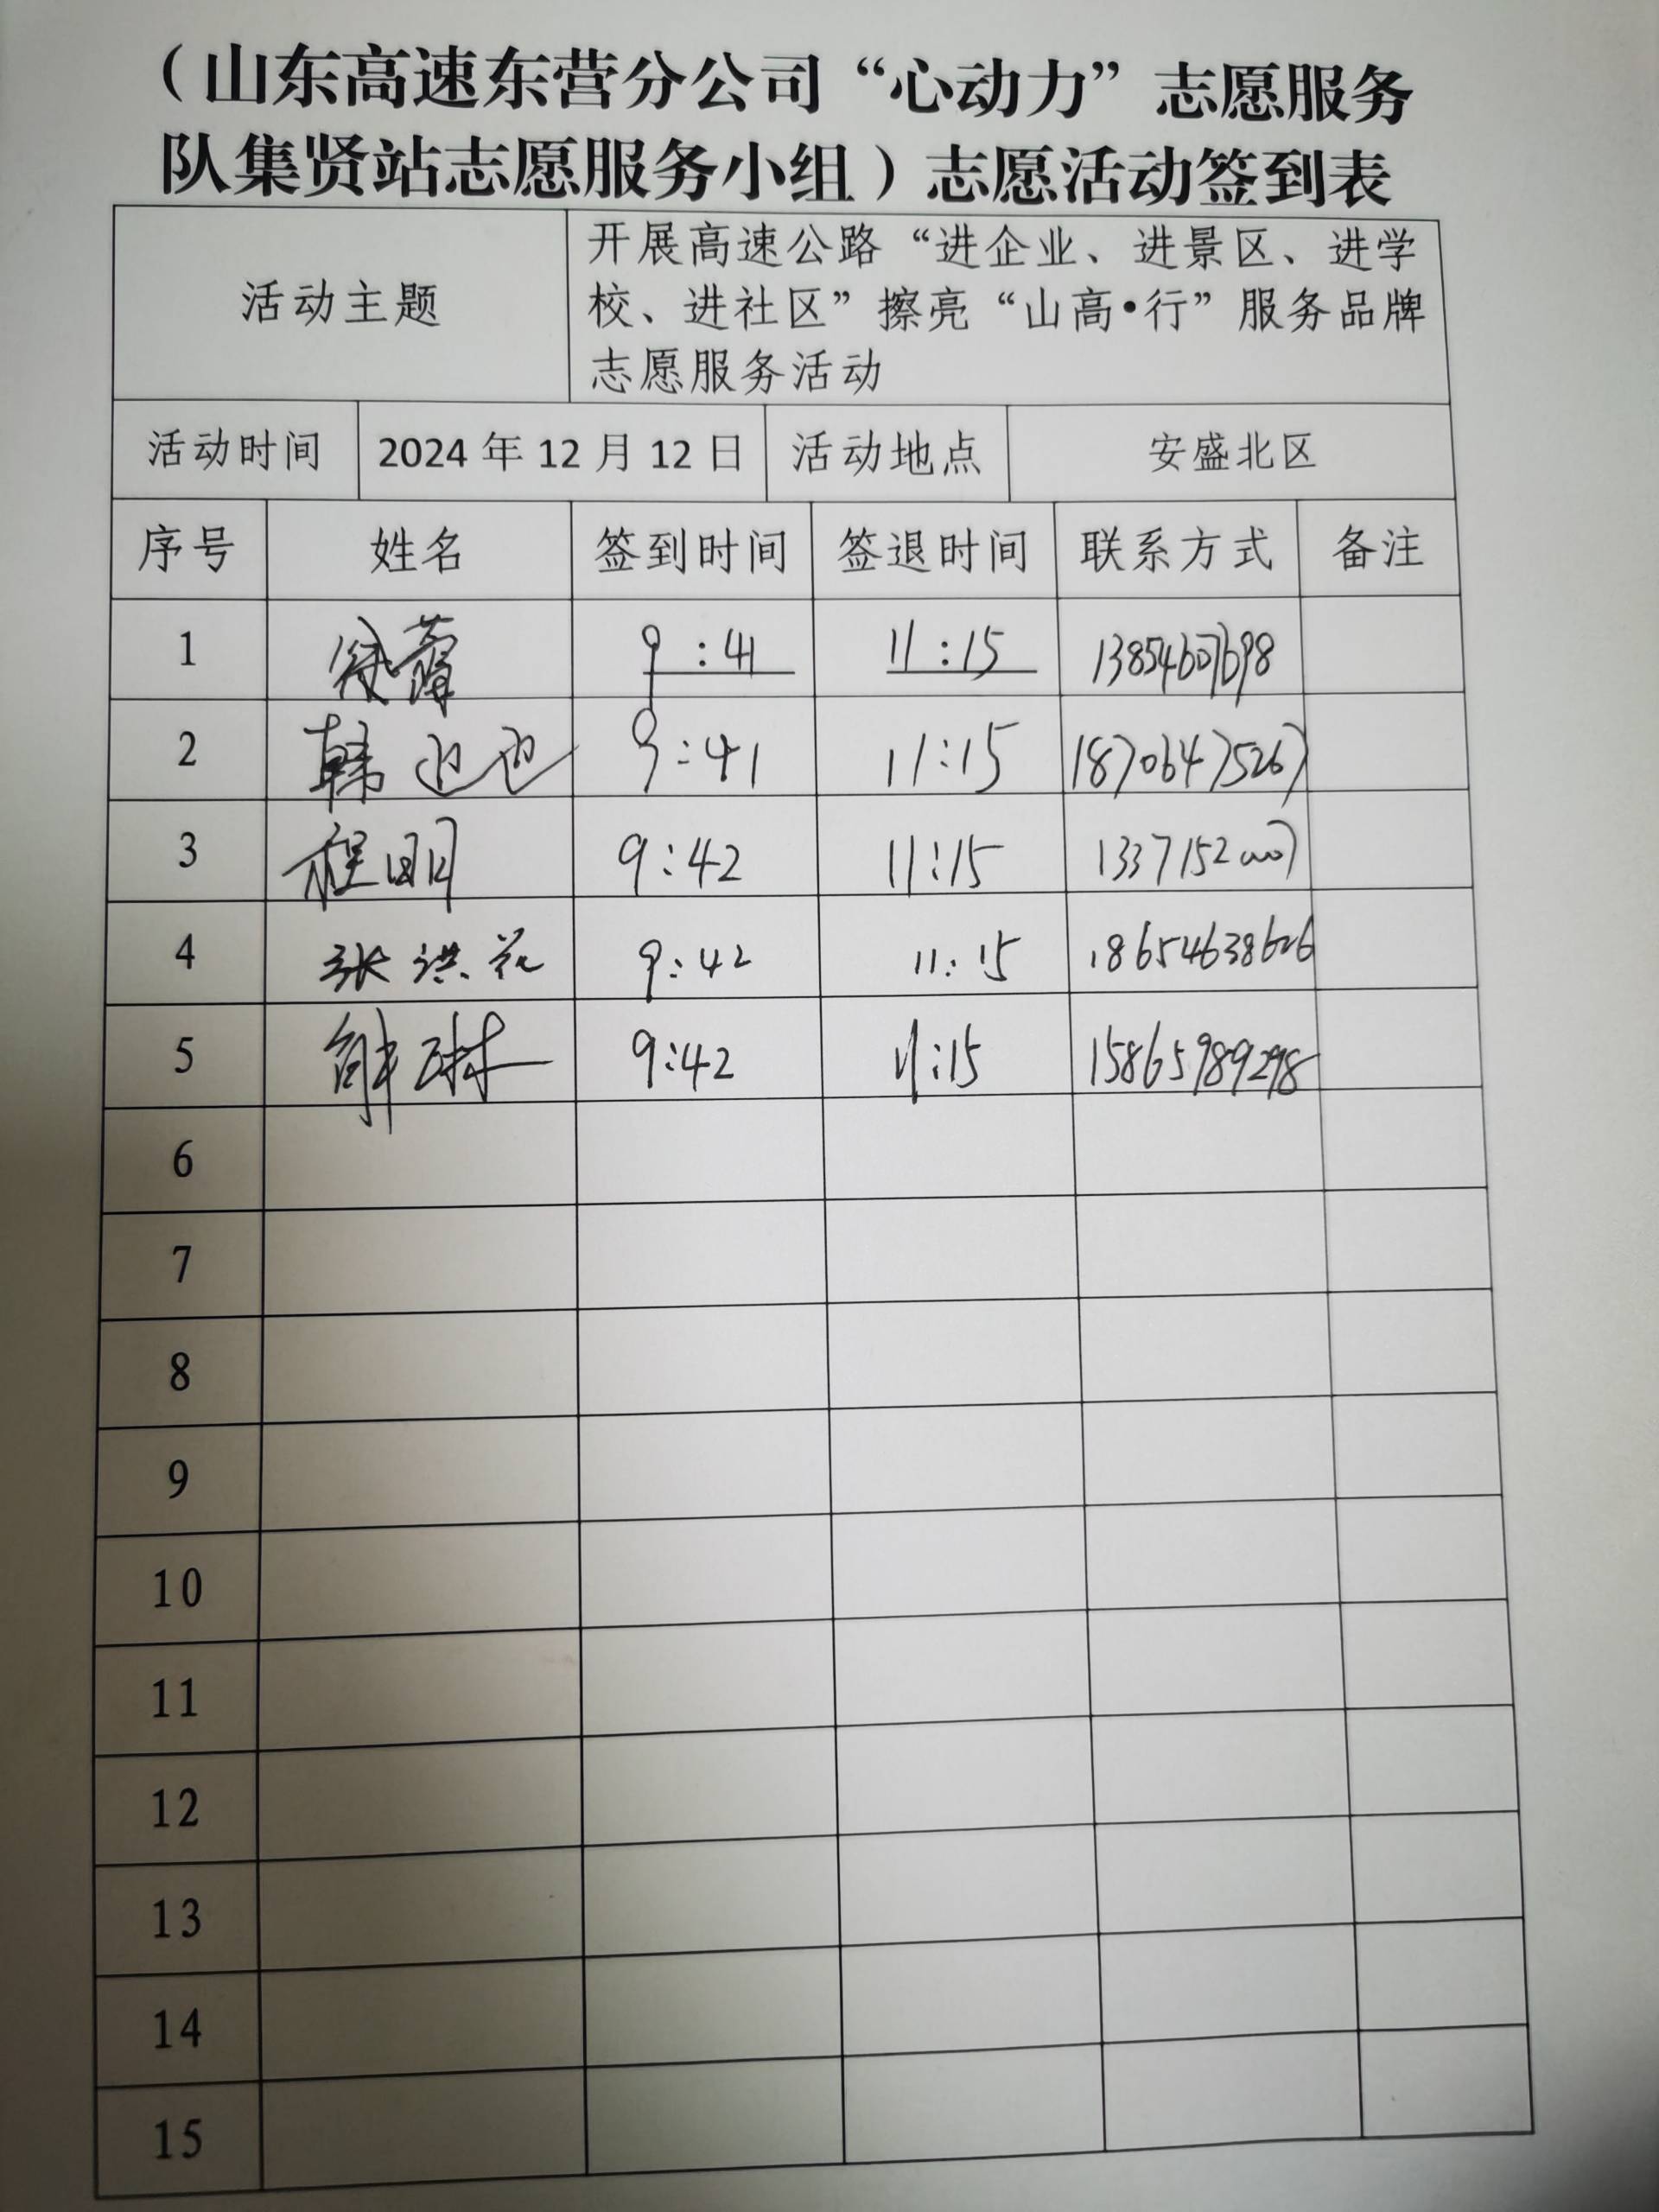 （山东高速东营分公司“心动力”志愿服务
队集贤站志愿服务小组）志愿活动签到表
活动主题
开展高速公路“进企业、进景区、进学
校、进社区”擦亮“山高•行”服务品牌
志愿服务活动
活动时间 2024年12月12日 活动地点 安盛北区
序号 姓名 签到时间 签退时间 联系方式 备注
1 徐蕾 9:41 11:15
2 韩迎迎 9:41 11:15 18706475267
3 程明 9:42 11:15 13371520007
4 张洪花 9:42 11:15 18654638626
5 9:42 11:15 15865989298
6
7
8
9
10
11
12
13
14
15